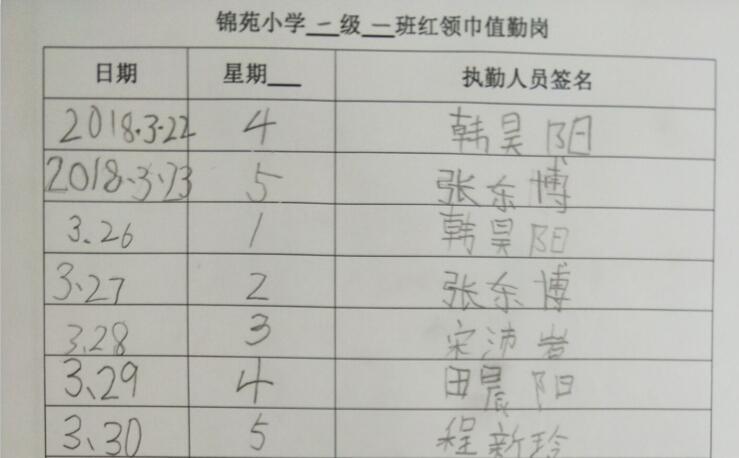 锦苑小学一级一班红领巾值勤岗
日期 星期 执勤人员签名
2018.3.22 4 韩昊阳
2018.3.23 5 张东博
3.26 1 韩昊阳
3.27 2 张东博
3.28 3 宋沛岩
3.29 4 田晨阳
3.30 5 程新玲